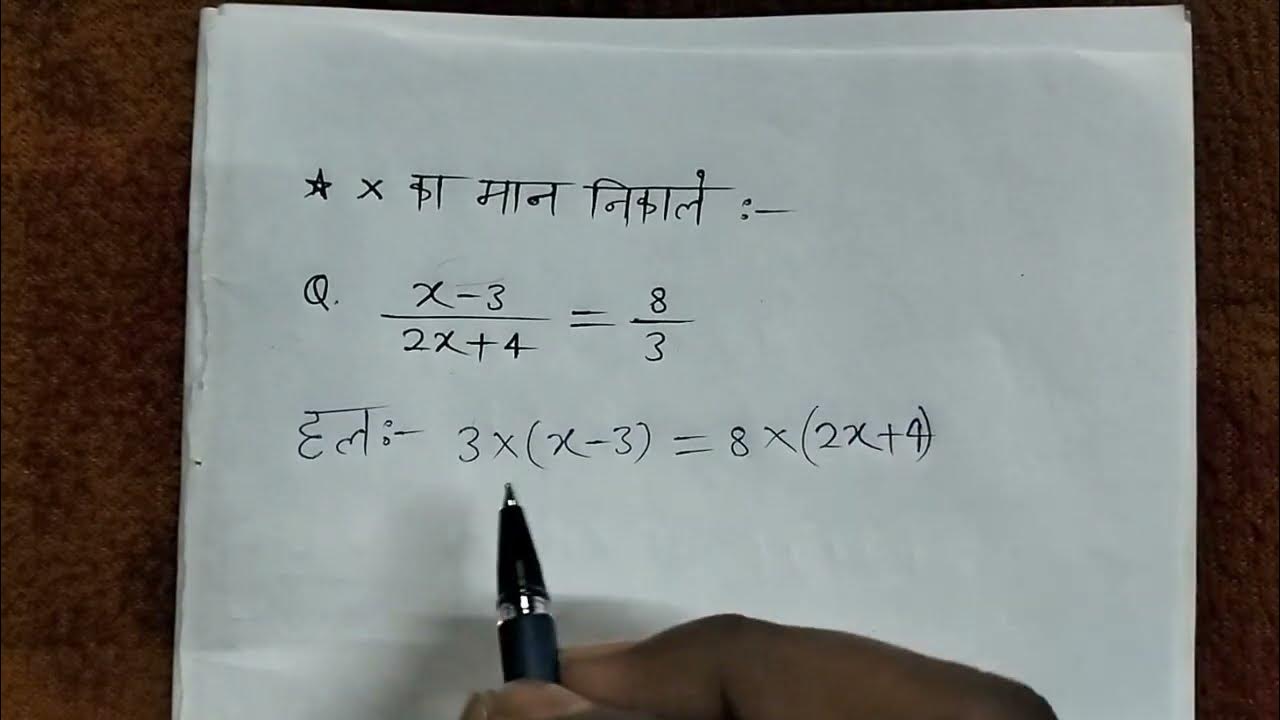 ☆ x का मान निकाले :-
Q. x-3/2x+4 = 8/3
हलः- 3×(x-3) = 8×(2x+4)